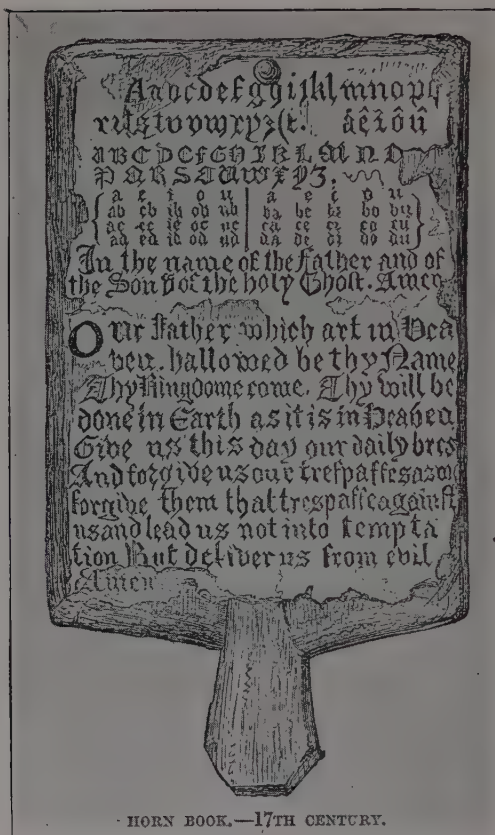 Aabcdefghijklmnopq
rſstuvwxyz&. âêîôû
ABCDEFGHIKLMNO
PQRSTUVWXYZ.
a e i o u | a e i o u
ab eb ib ob ub | ba be bi bo bu
ac ec ic oc uc | ca ce ci co cu
ad ed id od ud | da de di do du
In the name of the Father and of
the Son & of the holy Ghoſt. Amen
Our Father which art in Hea
ven, hallowed be thy Name
Thy Kingdome come. Thy will be
done in Earth as it is in Heaven
Give us this day our daily bre
And forgive us our treſpaſſes as w
forgive them that treſpaſſe againſt
us and lead us not into tempta
tion But deliver us from evil
Amen
HORN BOOK.—17TH CENTURY.